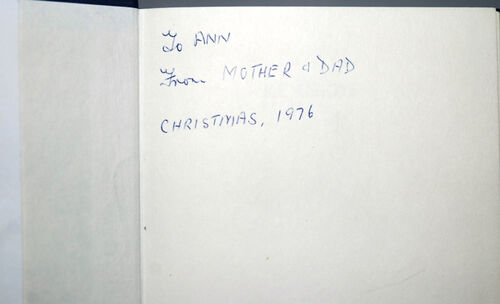 To ANN
From MOTHER & DAD
CHRISTMAS, 1976